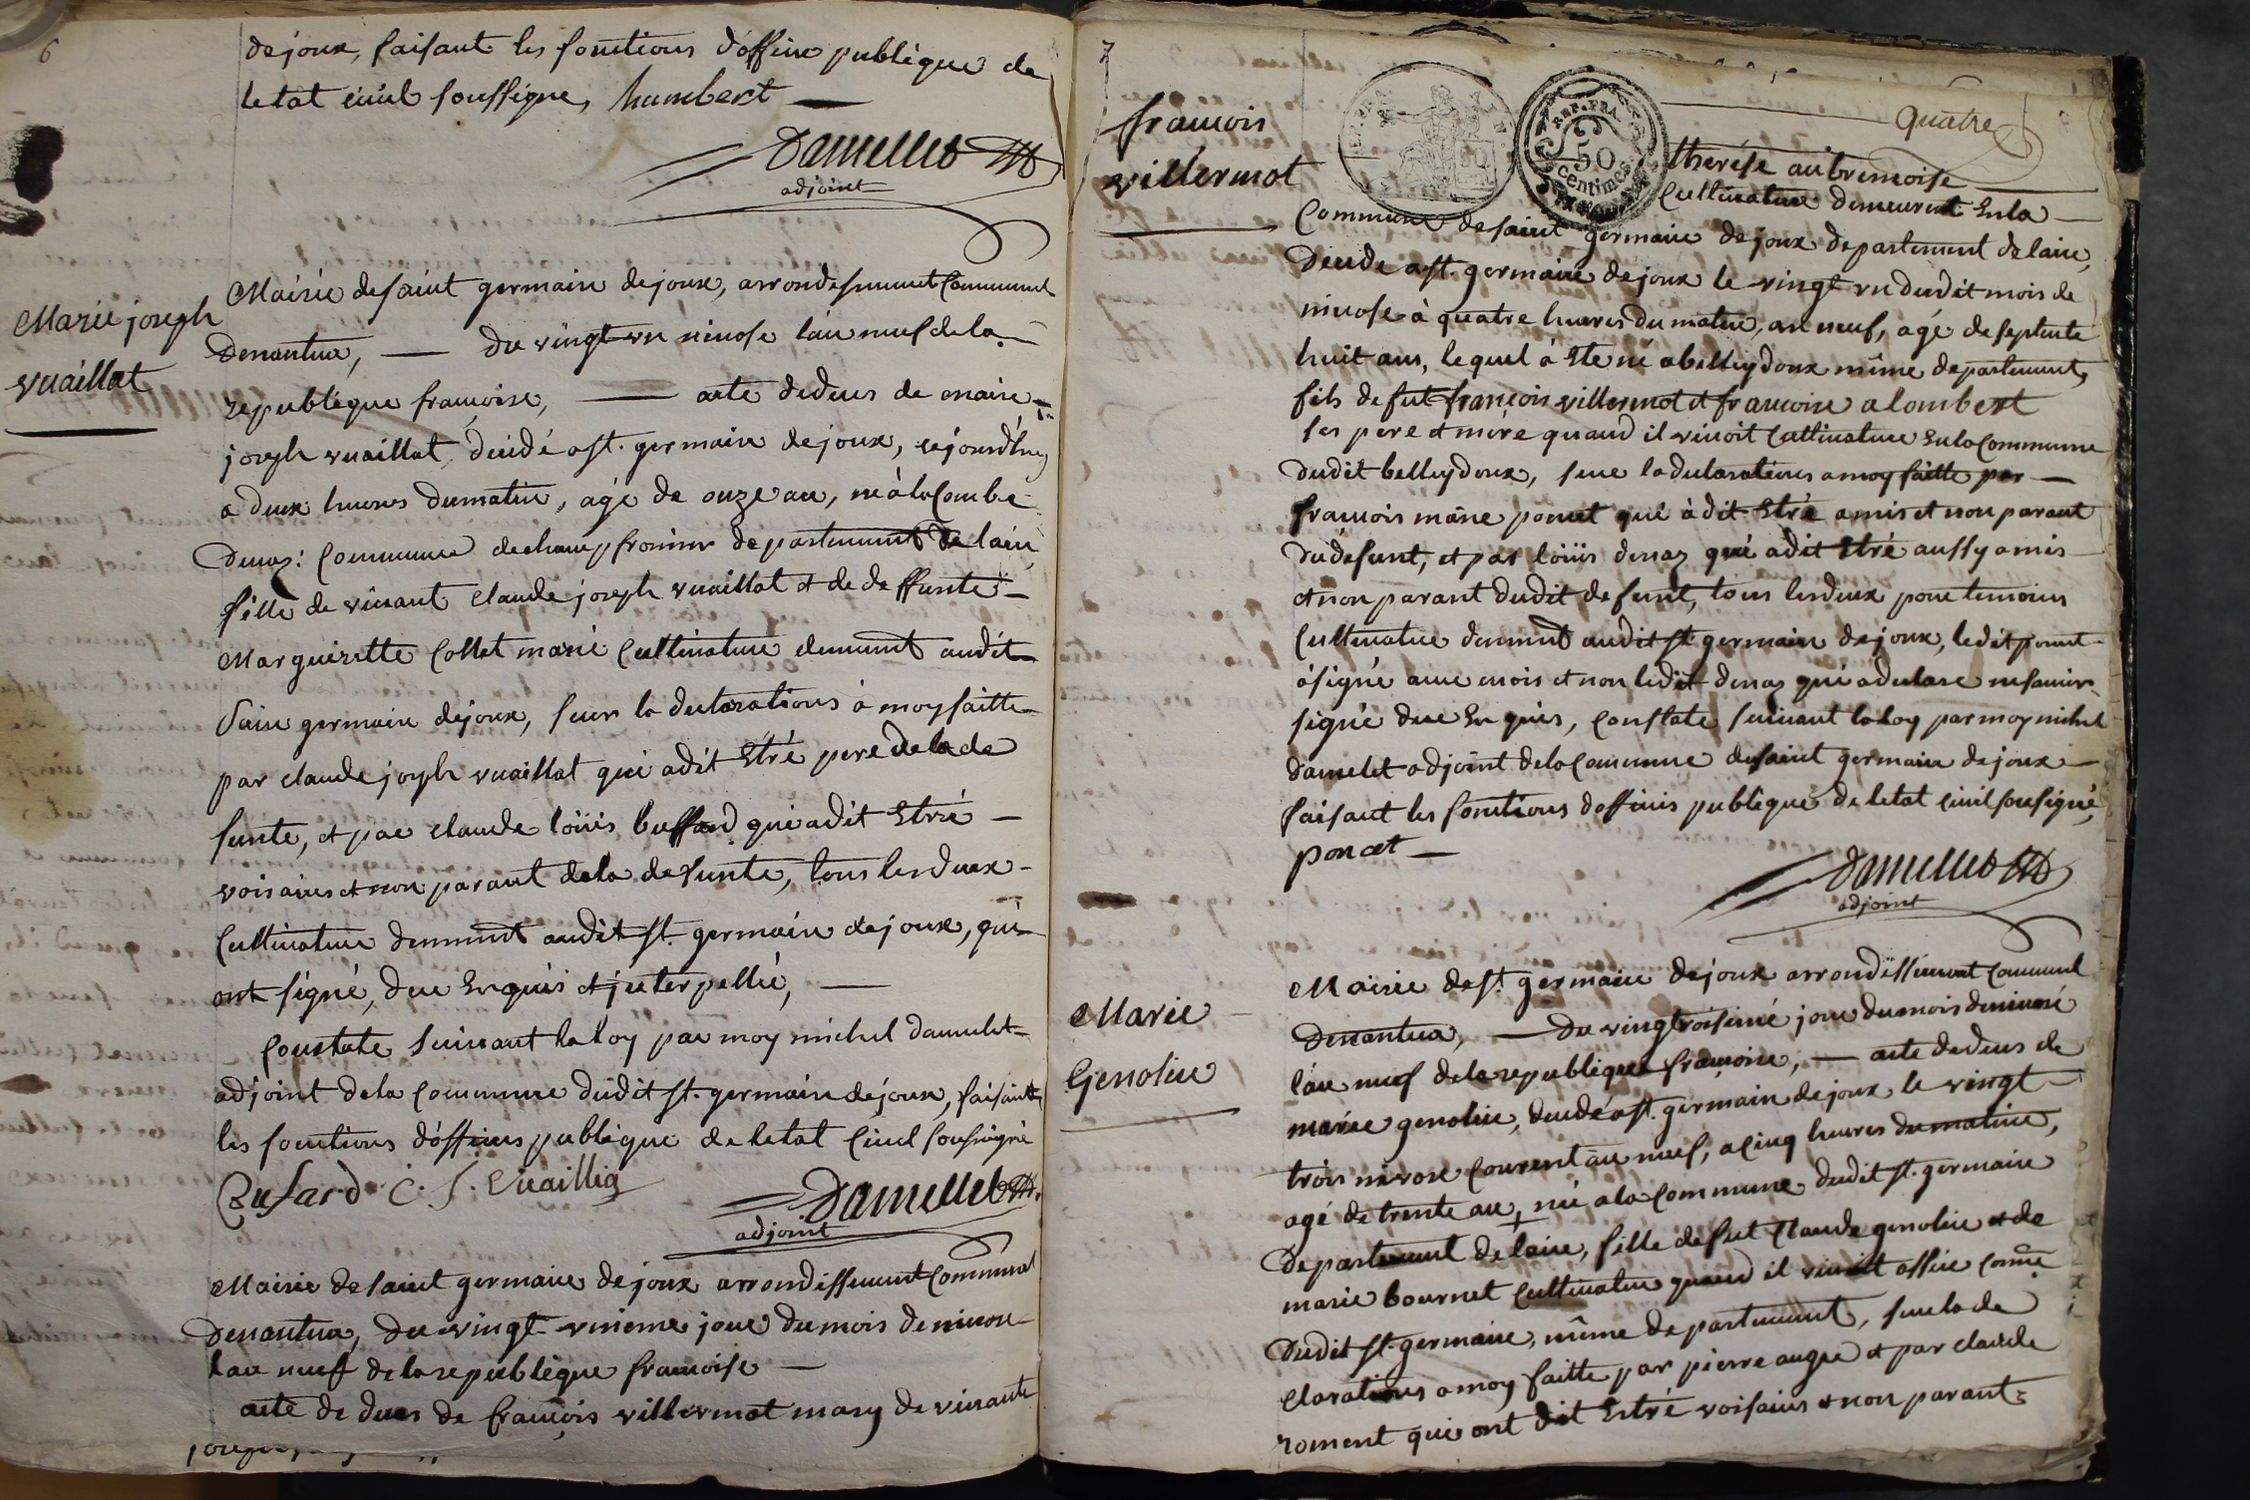 6
de joux, faisant les fonctions d'officie publique de
letat ciuil soussigne, humbert
Damellet
adjoint
Marie joseph
vuaillat
Mairie de saint germain de joux, arrondesement Communal
denantua, du vingt un nivose l'an neuf de la
republique françoise, acte dedeces de marie
joseph vuaillat, décidé a st. germain de joux, cejourdhuy
a deux heures dumatin, agé de onze an, né à la Combe
denaz: Commune de champfromier departement de lain
fille de vivant claude joseph vuaillat & de deffunte
Marguerette Collet marié Cultivature demeurant audit
Sain germain dejoux, sur la declarations à moy faitte
par claude joseph vuaillat qui adit Etré pere de la de
funte, et par claude loüis buffard qui adit Etré
voisains et non parant dela defunte, tous les deux
Cultivature demeurant audit st. germain de joux, qui
ont signé, due Enquis et jnterpellié,
Constate suivant la loy par moy michel damelet
adjoint dela Commune dudit st. germain de joux, faisant
les fonctions d'officies publique de letat Ciuil sousigné
Bufard C. J. Vuaillia
Damellet
adjoint
Mairie de saint germain de joux arrondissement Communal
denantua, du vingt unieme jour du mois de nivose
l'an neuf de la republique francoise
acte de deces de françois villermot mary de vivante
7
quatre
REP. FRA.
50
centimes
françois
villermot
therése aubremoise
Cultivature demeurent En la
Commune de saint germain de joux departement de lain,
decide a st. germain de joux le vingt un dudit mois de
nivose à quatre heures du matin, an neuf, agé de septente
huit ans, lequel à Ete né a belleydoux même departement,
fils de fut françois villermot et francoise alombert
ses pere et mére quand il vivoit Cultivature En la Commune
dudit belleydoux, sur la declarations a moy faitte par
francois marie poncet qui à dit Etré amis et non parant
dudefunt, et par loüis denaz qui adit Etré aussy amis
et non parant dudit defunt, tous les deux pour temoins
Cultivature demeurant audit st. germain de joux, ledit poncet
à signé avec mois et non ledit denaz qui a declare ne savoir
signé due Enquis, Constate suivant la loy par moy michel
damelet adjoint de la Commune de saint germain de joux
faisant les fonctions d'officies publique de letat Ciuil sousigné,
poncet
Damellet
adjoint
Marie
Genolin
Mairie de st. germain de joux arrondissement Communal
denantua, du vingtroisimé jour du mois de nivosé
l'an neuf de la republique françoise, acte dedeces de
marie genolin, decedé a st. germain de joux, le vingt
trois nivose Courent an neuf, a Cinq heures du matin,
agé de trente an, née a la Commune dudit st. germain
departement de lain, fille de fut Claude genolin & de
marie bournet Cultivature quand il vivoit
dudit st. germain, même departement, sur la de
clarations a moy faitte par pierre augre et par claude
roment qui ont dit Etré voisains & non parant